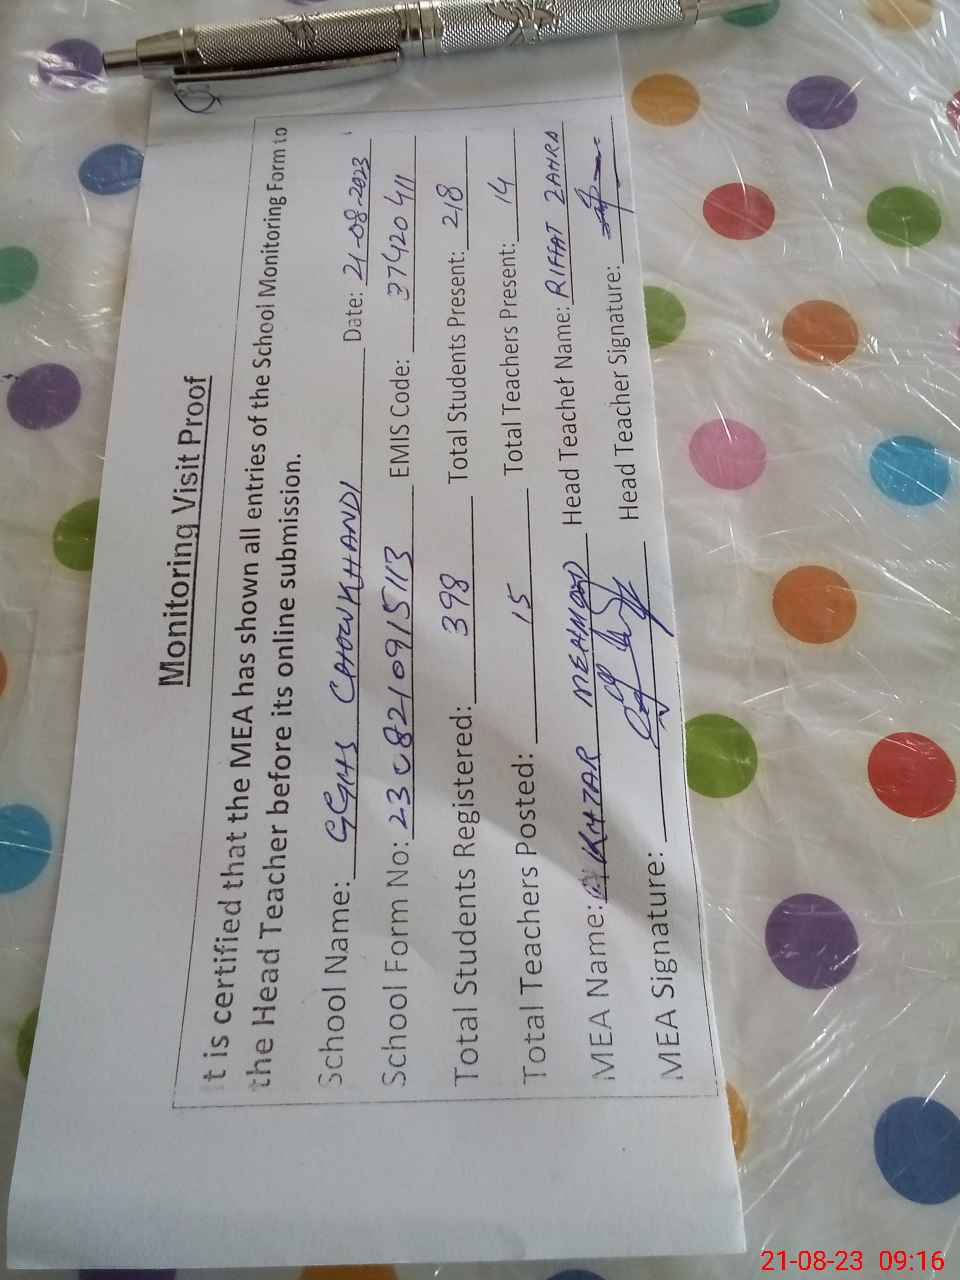 Monitoring Visit Proof
t is certified that the MEA has shown all entries of the School Monitoring Form to
the Head Teacher before its online submission.
School Name: GGHS CHOWKHANDI Date: 21-08-2023
School Form No: 2308210915113 EMIS Code: 37420411
Total Students Registered: 398 Total Students Present: 218
Total Teachers Posted: 15 Total Teachers Present: 14
MEA Name: IKHTAR MEHMOOD Head Teacher Name: RIFFAT ZAHRA
MEA Signature: Head Teacher Signature:
21-08-23 09:16